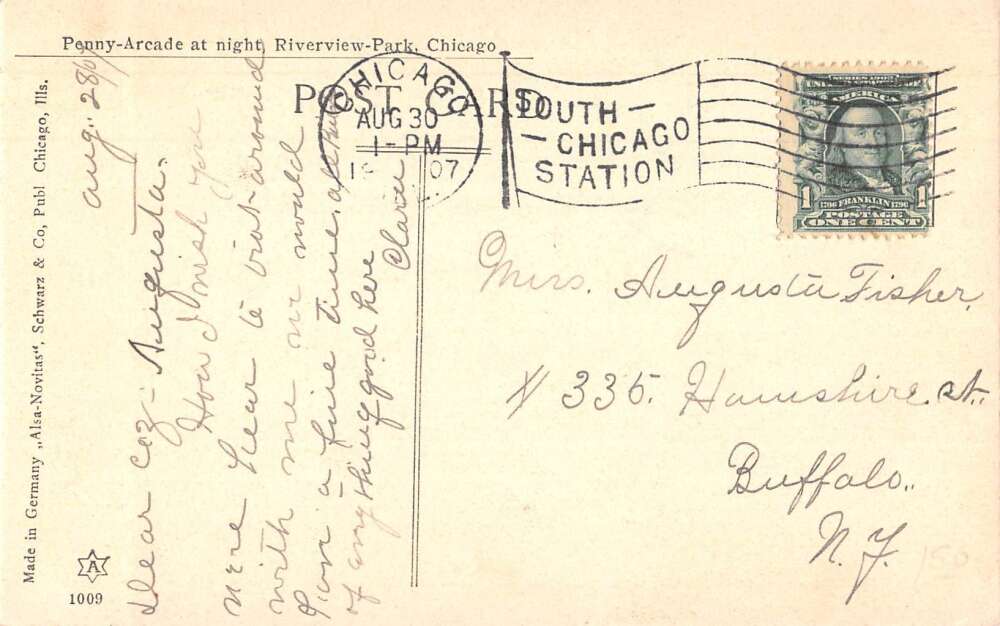 Penny-Arcade at night, Riverview-Park, Chicago
POST CARD
CHICAGO
AUG 30
1-PM
07
SOUTH-
-CHICAGO
STATION
SERIES 1902
AMERICA
1 1
1706 FRANKLIN 1790
POSTAGE
ONE CENT
Made in Germany „Alsa-Novitas“, Schwarz & Co, Publ Chicago, Ills.
A
1009
Aug. 28/07
Dear Coz- Augusta.
How I wish you
were hear to visit around
with me we would
have a fine time.
of anything good here
Clara
Miss. Augusta Fisher,
# 335. Hamshire st.
Buffalo..
N. Y.
150